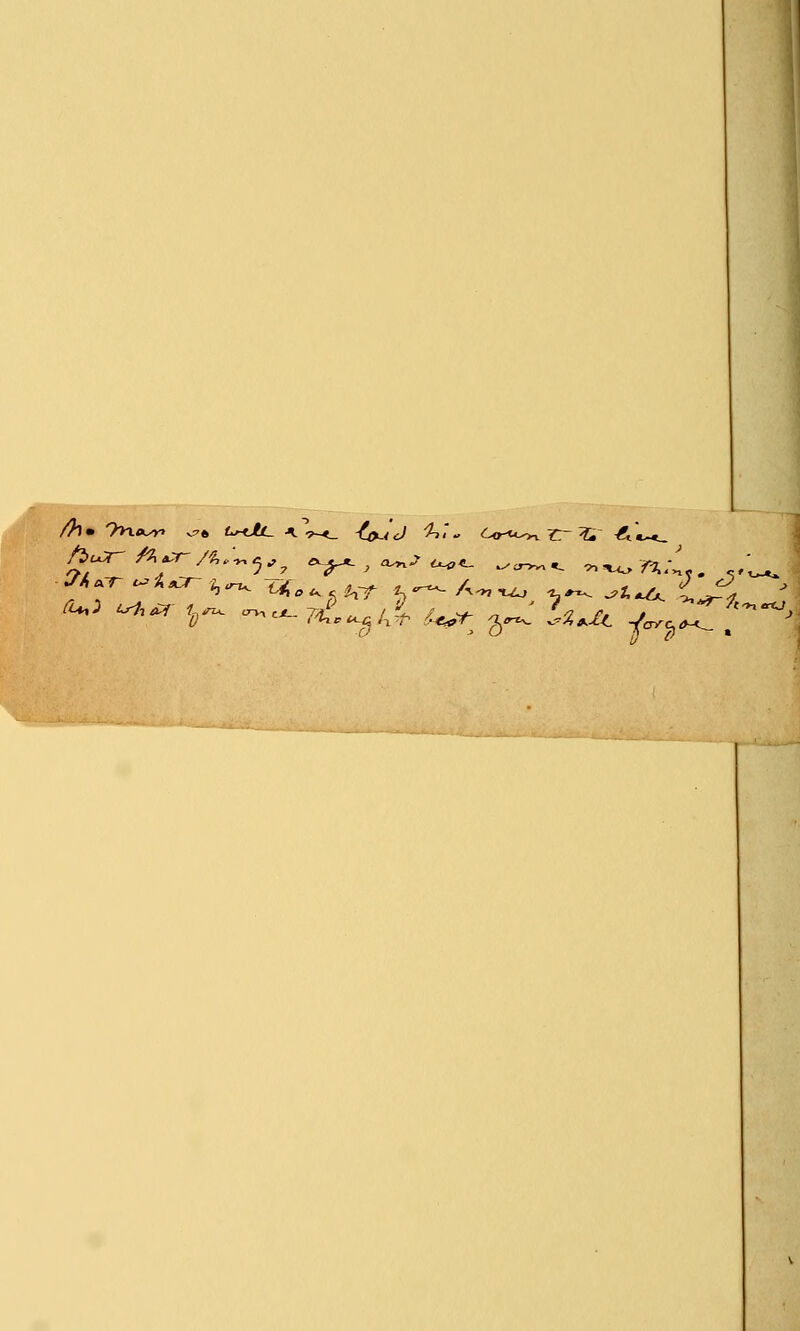 No Man so well a one loved his Country to live,
But that things, age, and use some new thing give
That what you thought you knew you shall not know,
And what you once thought best you shall forgoe.